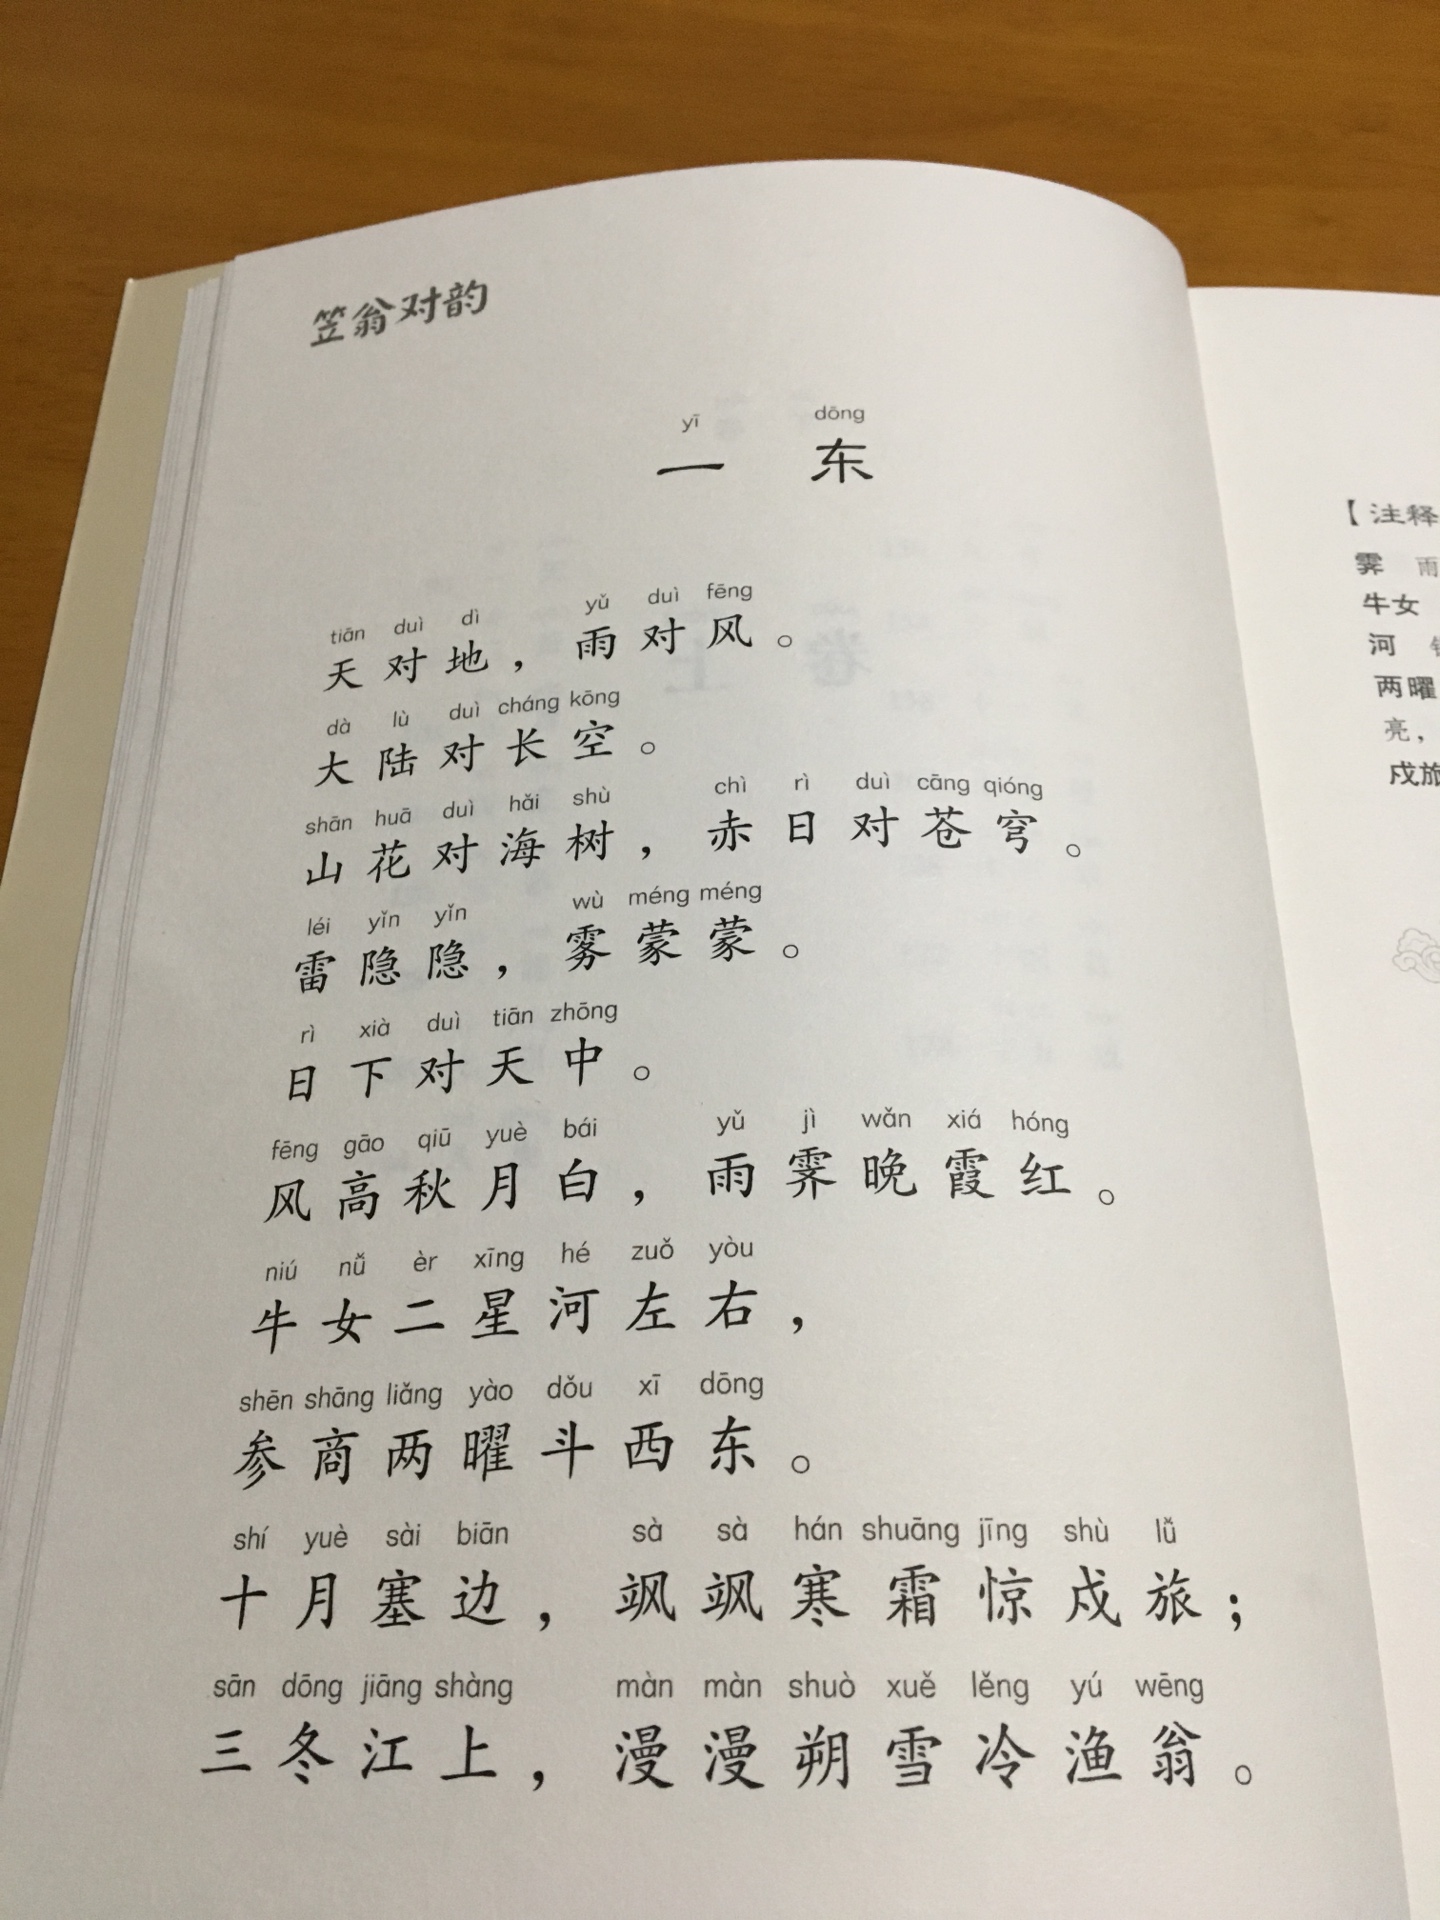 笠翁对韵
yī dōng
一 东
tiān duì dì yǔ duì fēng
天对地，雨对风。
dà lù duì cháng kōng
大陆对长空。
shān huā duì hǎi shù chì rì duì cāng qióng
山花对海树，赤日对苍穹。
léi yǐn yǐn wù méng méng
雷隐隐，雾蒙蒙。
rì xià duì tiān zhōng
日下对天中。
fēng gāo qiū yuè bái yǔ jì wǎn xiá hóng
风高秋月白，雨霁晚霞红。
niú nǚ èr xīng hé zuǒ yòu
牛女二星河左右，
shēn shāng liǎng yào dǒu xī dōng
参商两曜斗西东。
shí yuè sài biān sà sà hán shuāng jīng shù lǚ
十月塞边，飒飒寒霜惊戍旅；
sān dōng jiāng shàng màn màn shuò xuě lěng yú wēng
三冬江上，漫漫朔雪冷渔翁。
【注释
霁 雨
牛女
河
两曜
亮，
戍旅